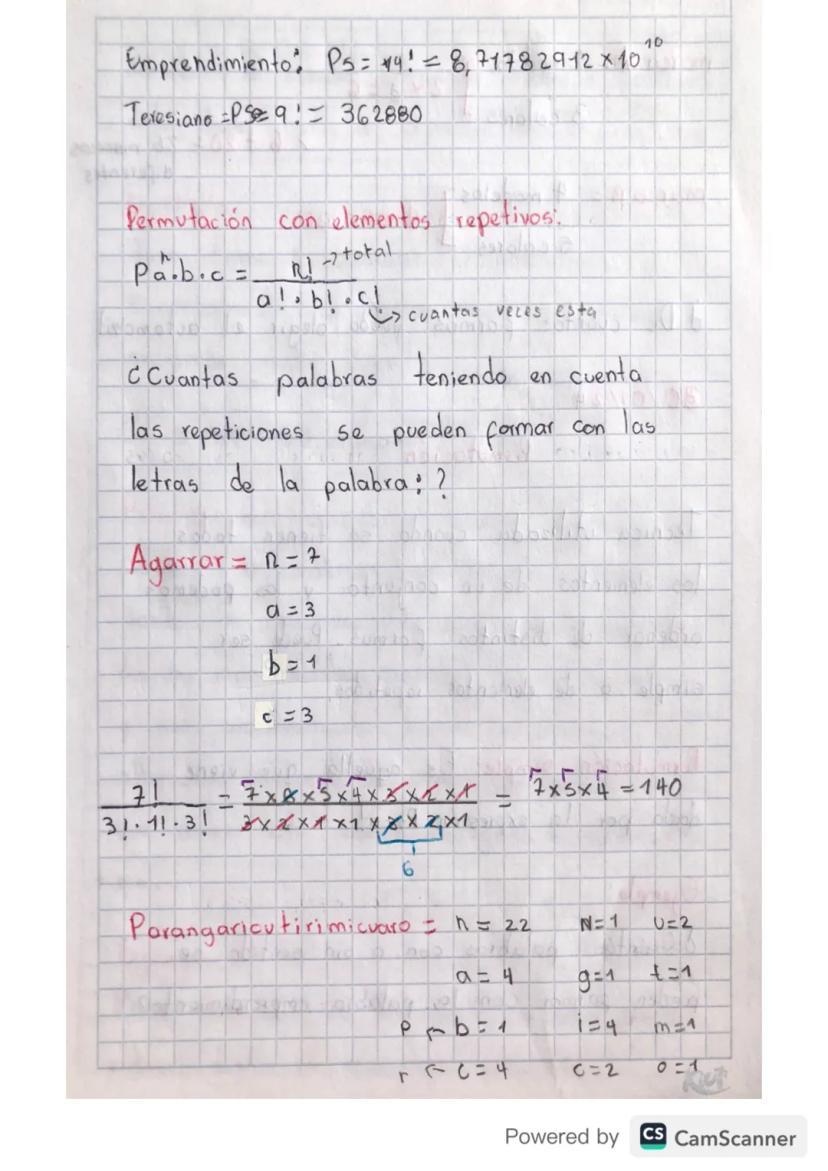 Emprendimiento: Ps = 14! = 8,71782912 x 10^10
Teresiano = Ps = 9! = 362880
Permutación con elementos repetivos:
P^n a.b.c = n! → total
a! . b! . c!
↳ cuantas veces esta
¿Cuantas palabras teniendo en cuenta
las repeticiones se pueden formar con las
letras de la palabra: ?
Agarrar = n = 7
a = 3
b = 1
c = 3
7! / 3! . 1! . 3! = 7 x 6 x 5 x 4 x 3 x 2 x 1 / 3 x 2 x 1 x 1 x 3 x 2 x 1 = 7 x 5 x 4 = 140
6
Parangaricutirimicuaro = n = 22 N = 1 U = 2
a = 4 g = 1 t = 1
P ← b = 1 i = 4 m = 1
r ← c = 4 c = 2 o = 1
Powered by CS CamScanner